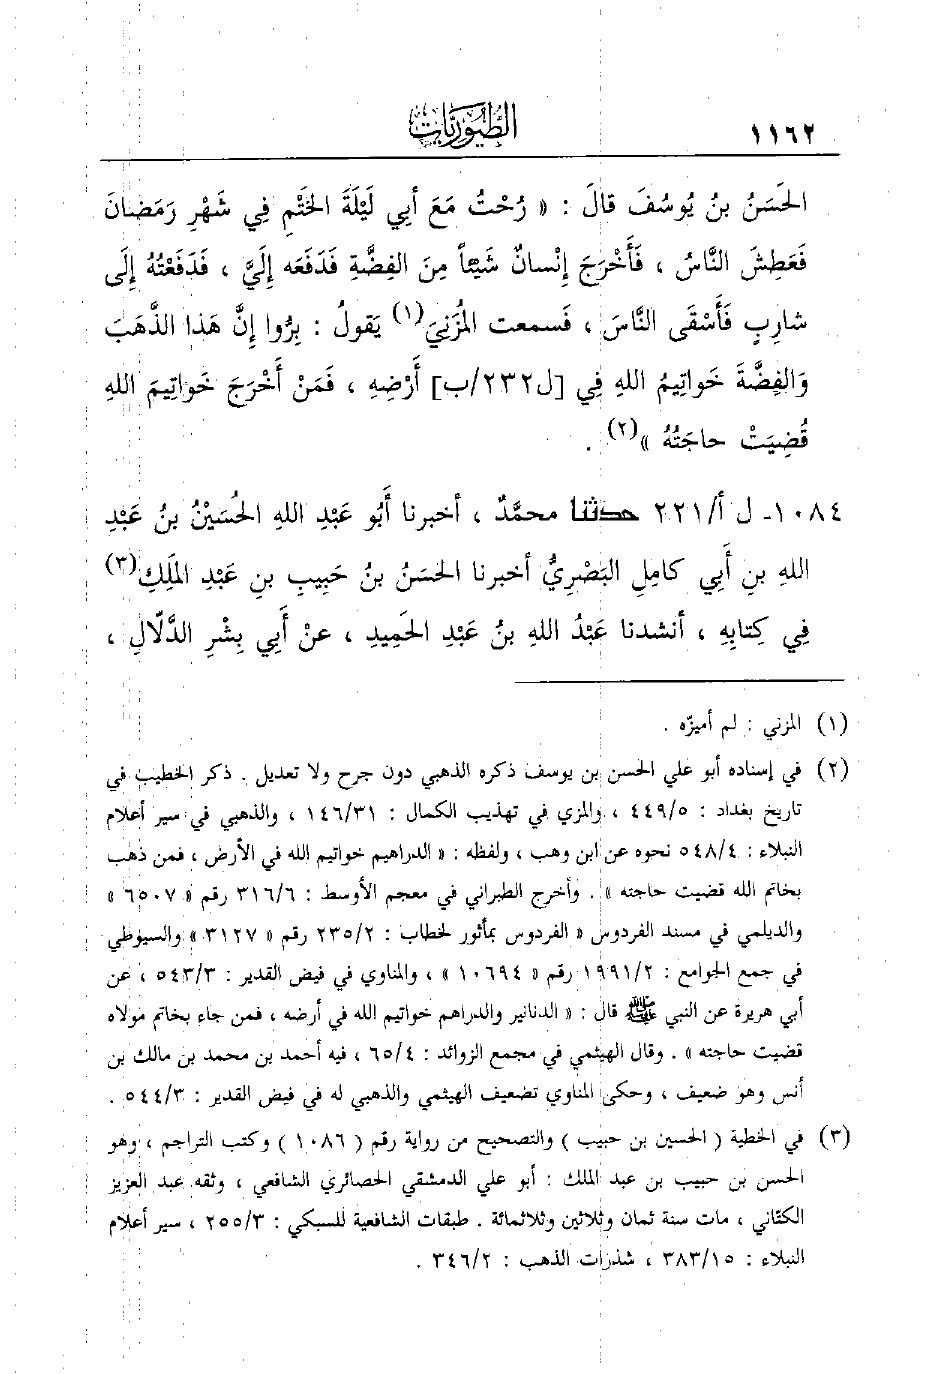 ١١٦٢
الطُّيُورِيَّات
الحَسَنُ بنُ يُوسُفَ قالَ : « رُحْتُ مَعَ أبي لَيْلَةَ الخَتْمِ فِي شَهْرِ رَمَضانَ
فَعَطِشَ النَّاسُ ، فَأَخْرَجَ إِنْسانٌ شَيْئاً مِنَ الفِضَّةِ فَدَفَعَه إِلَيَّ ، فَدَفَعْتُهُ إِلَى
شارِبٍ فَأَسْقَى النَّاسَ ، فَسمعت المُزَنِيَ(١) يَقولُ : بِرُّوا إِنَّ هَذا الذَّهَبَ
وَالفِضَّةَ خَواتِيمُ اللهِ فِي [ل٢٣٢/ب] أَرْضِهِ ، فَمَنْ أَخْرَجَ خَواتِيمَ اللهِ
قُضِيَتْ حاجَتُهُ »(٢) .
١٠٨٤- ل أ/٢٢١ حدثنا محمَّدٌ ، أخبرنا أَبُو عَبْدِ اللهِ الحُسَيْنُ بنُ عَبْدِ
اللهِ بنِ أَبِي كامِلِ البَصْرِيُّ أخبرنا الحَسَنُ بنُ حَبِيبِ بنِ عَبْدِ المَلِكِ(٣)
فِي كِتابِهِ ، أنشدنا عَبْدُ اللهِ بنُ عَبْدِ الحَمِيدِ ، عنْ أَبِي بِشْرِ الدَّلّالِ ،
(١) المزني : لم أميزّه .
(٢) في إسناده أبو علي الحسن بن يوسف ذكره الذهبي دون جرح ولا تعديل . ذكر الخطيب في
تاريخ بغداد : ٤٤٩/٥ ، والمزي في تهذيب الكمال : ١٤٦/٣١ ، والذهبي في سير أعلام
النبلاء : ٥٤٨/٤ نحوه عن ابن وهب ، ولفظه : « الدراهيم خواتيم الله في الأرض ، فمن ذهب
بخاتم الله قضيت حاجته » . وأخرج الطبراني في معجم الأوسط : ٣١٦/٦ رقم « ٦٥٠٧ »
والديلمي في مسند الفردوس « الفردوس بمأثور لخطاب : ٢٣٥/٢ رقم « ٣١٢٧ » والسيوطي
في جمع الجوامع : ١٩٩١/٢ رقم « ١٠٦٩٤ » ، والمناوي في فيض القدير : ٥٤٣/٣ ، عن
أبي هريرة عن النبي ﷺ قال : « الدنانير والدراهم خواتيم الله في أرضه ، فمن جاء بخاتم مولاه
قضيت حاجته » . وقال الهيثمي في مجمع الزوائد : ٦٥/٤ ، فيه أحمد بن محمد بن مالك بن
أنس وهو ضعيف ، وحكى المناوي تضعيف الهيثمي والذهبي له في فيض القدير : ٥٤٤/٣ .
(٣) في الخطية ( الحسين بن حبيب ) والتصحيح من رواية رقم ( ١٠٨٦ ) وكتب التراجم ، وهو
الحسن بن حبيب بن عبد الملك : أبو علي الدمشقي الحصائري الشافعي ، وثقه عبد العزيز
الكتّاني ، مات سنة ثمان وثلاثين وثلاثمائة . طبقات الشافعية للسبكي : ٢٥٥/٣ ، سير أعلام
النبلاء : ٣٨٣/١٥ ، شذرات الذهب : ٣٤٦/٢ .